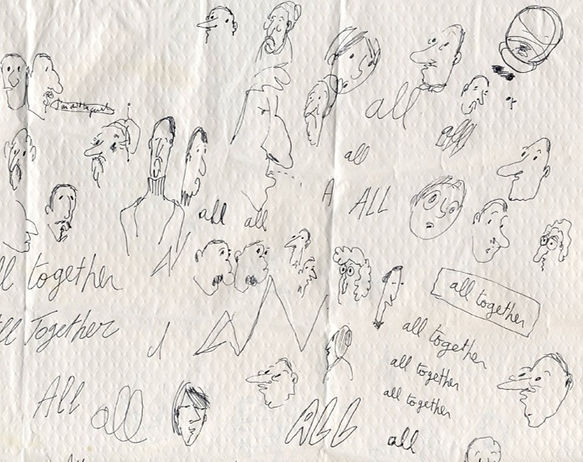 all
all
all
A
ALL
all
all
all together
ll together
all together
ll Together
all together
all together
ALL
all
ALL
all